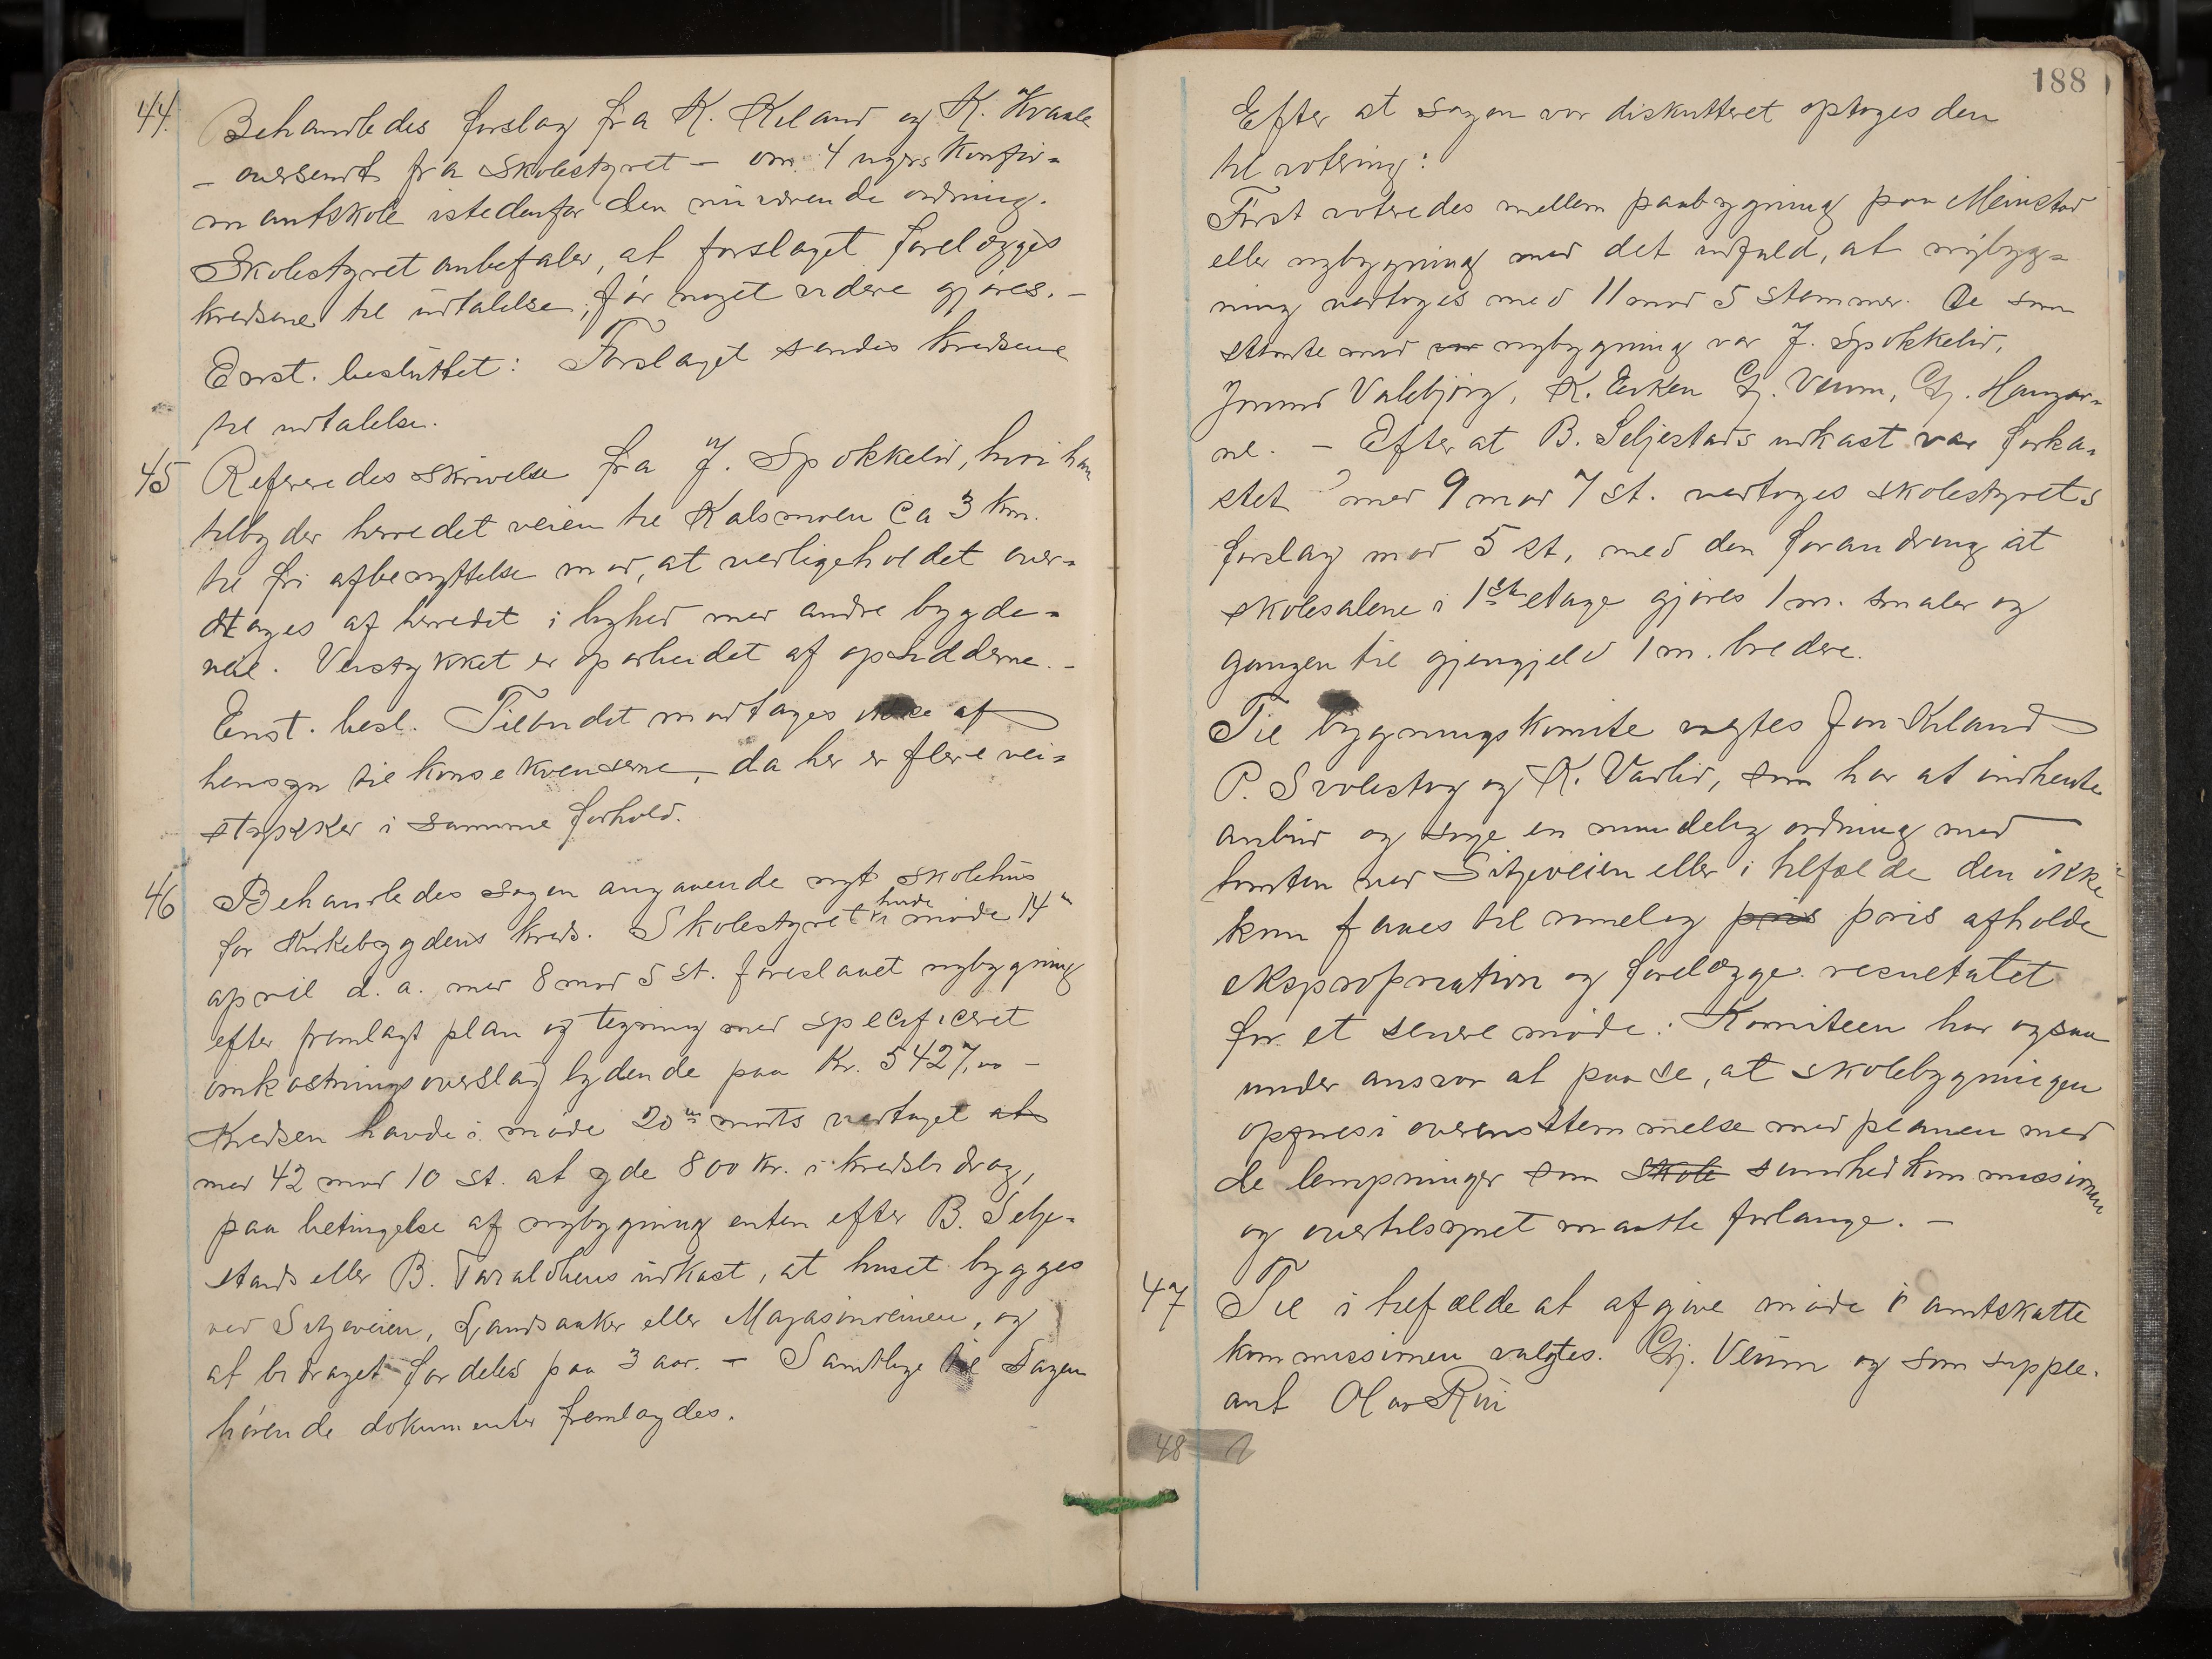 44. Behandledes forslag fra K. Kiland og K. Kvaale
- oversendt fra skolestyret - om 4 ugers konfir-
mantskole istedenfor den nuværende ordning.
Skolestyret anbefaler, at forslaget forelægges
kredsene til udtalelse, før noget videre gjøres. -
Enst. besluttet: Forslaget sendes kredsene
til udtalelse.
45 Referedes skrivelse fra J. Spokkelid, hvori han
tilbyder herredet veien til Kalsmoen ca 3 km.
til fri afbenyttelse mod, at vedligeholdet over-
tages af herredet i lighed med andre bygde-
veie. Veistykket er oparbeidet af opsidderne. -
Enst. besl. Tilbudet modtages ikke af
hensyn til konsekvenserne, da her er flere vei-
stykker i samme forhold.
46 Behandledes sagen angaaende nyt skolehus
for Kirkebygdens kreds. Skolestyret havde i møde 14de
april d. a. med 8 mod 5 st. foreslaaet nybygning
efter fremlagt plan og tegning med specificeret
omkostningsoverslag lydende paa Kr. 5427,00 -
Kredsen havde i møde 20de marts vedtaget at
med 42 mod 10 st. at yde 800 kr. i kredsbidrag,
paa betingelse af nybygning enten efter B. Selje-
stads eller B. Taraldliens udkast, at huset bygges
ved Sitjeveien, Landsanker eller Magasinreinen, og
at bidraget fordeles paa 3 aar. - Samtlige til sagen
hørende dokumenter fremlagdes.
188
Efter at sagen var diskutteret optoges den
til votering:
Først voteredes mellem paabygning paa Meinstad
eller nybygning med det udfald, at nybyg-
ning vedtoges med 11 mod 5 stemmer. De som
stemte mod var nybygning var J. Spokkelid,
Jmund Valebjørg, K. Eeken Gj. Veum, Gj. Haugar-
ne. - Efter at B. Seljestads udkast var forka-
stet med 9 mod 7 st. vedtoges skolestyrets
forslag mod 5 st, med den forandring at
skolesalene i 1ste etage gjøres 1 m. smaler og
gangen til gjengjeld 1 m. bredere.
Til bygningskomite valgtes Jon Kiland
P. Svolestog og K. Vadlid, som har at indhente
anbud og søge en mindelig ordning med
tomten ved Sitjeveien eller i tilfælde den ikke
kan faaes til rimelig pris pris afholde
ekspropriation og forelægge resultatet
for et senere møde. Komiteen har ogsaa
under ansvar at paase, at skolebygningen
opføres i overensstemmelse med planen med
de lempninger som skole sundhedkommissionen
og overtilsynet maatte forlange. -
47 Til i tilfælde at afgive møde i amtskatte
kommissionen valgtes. Gj. Veum og som supple-
ant Olav Rui
48